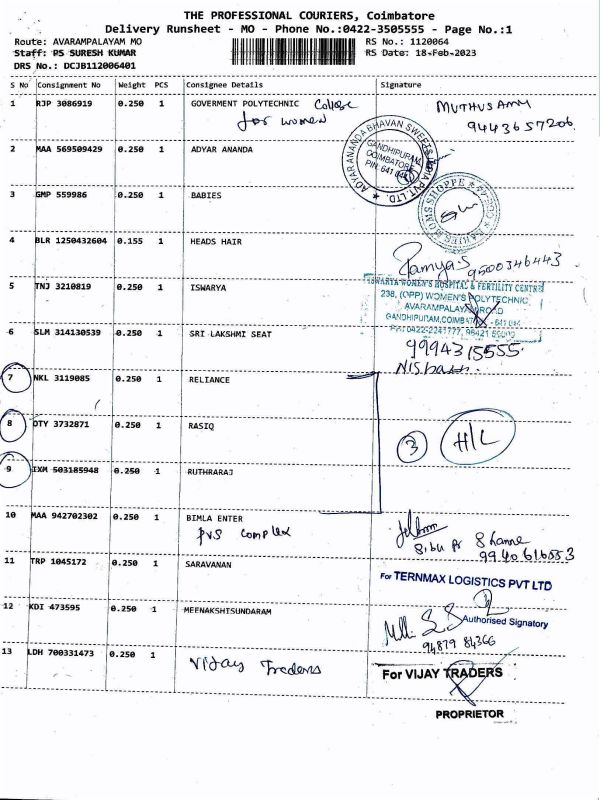 THE PROFESSIONAL COURIERS, Coimbatore
Delivery Runsheet - MO - Phone No.:0422-3505555 - Page No.:1
Route: AVARAMPALAYAM MO RS No.: 1120064
Staff: PS SURESH KUMAR RS Date: 18-Feb-2023
DRS No.: DCJB112006401
S No Consignment No Weight PCS Consignee Details Signature
1 RJP 3086919 0.250 1 GOVERMENT POLYTECHNIC College MUTHUSAMY
for women 9443657206
2 MAA 569509429 0.250 1 ADYAR ANANDA
ADYAR ANANDA BHAVAN SWEETS INDIA PVT. LTD.
GANDHIPURAM,
COIMBATORE
PIN: 641
3 GMP 559986 0.250 1 BABIES
MOMS SHOPPE
4 BLR 1250432604 0.155 1 HEADS HAIR
Ramya S 9500346443
5 TNJ 3210819 0.250 1 ISWARYA
ISWARYA WOMEN'S HOSPITAL & FERTILITY CENTRE
238, (OPP) WOMEN'S POLYTECHNIC
AVARAMPALAYAM ROAD
GANDHIPURAM, COIMBATORE - 641
PH: 0422-2241777,
6 SLM 314130539 0.250 1 SRI LAKSHMI SEAT
9994315555
7 NKL 3119085 0.250 1 RELIANCE
8 DTY 3732871 0.250 1 RASIQ
3 H/L
9 IXM 503185948 0.250 1 RUTHRARAJ
10 MAA 942702302 0.250 1 BIMLA ENTER
PVS complex
9940616553
11 TRP 1045172 0.250 1 SARAVANAN
For TERNMAX LOGISTICS PVT LTD
12 KDI 473595 0.250 1 MEENAKSHISUNDARAM
Authorised Signatory
94879 84366
13 LDH 700331473 0.250 1 Vijay Traders
For VIJAY TRADERS
PROPRIETOR